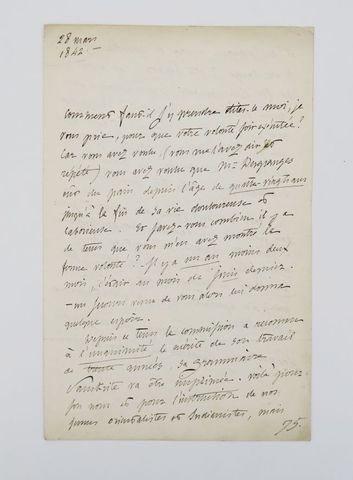 28 mars
1842.
Comment faut-il s'y prendre dites-le moi, je
vous prie, pour que votre volonté soit exécutée?
Car vous avez voulu (vous me l'avez dit et
répété) vous avez voulu que Mr Desgranges
eût du pain depuis l'âge de quatre-vingts ans
jusqu'à la fin de sa vie douloureuse et
laborieuse. Et savez-vous combien il y a
de tems que vous m'avez montré la
ferme volonté? Il y a un an moins deux
mois, c'était au mois de juin dernier.
– un secours venu de vous alors lui donna
quelque espoir.
Depuis ce tems la commission a reconnu
à l'unanimité le mérite de son travail
de trente années, sa grammaire
Sanskrite va être imprimée. voilà pour
son nom et pour l'instruction de nos
jeunes orientalistes et Indianistes, mais
75.